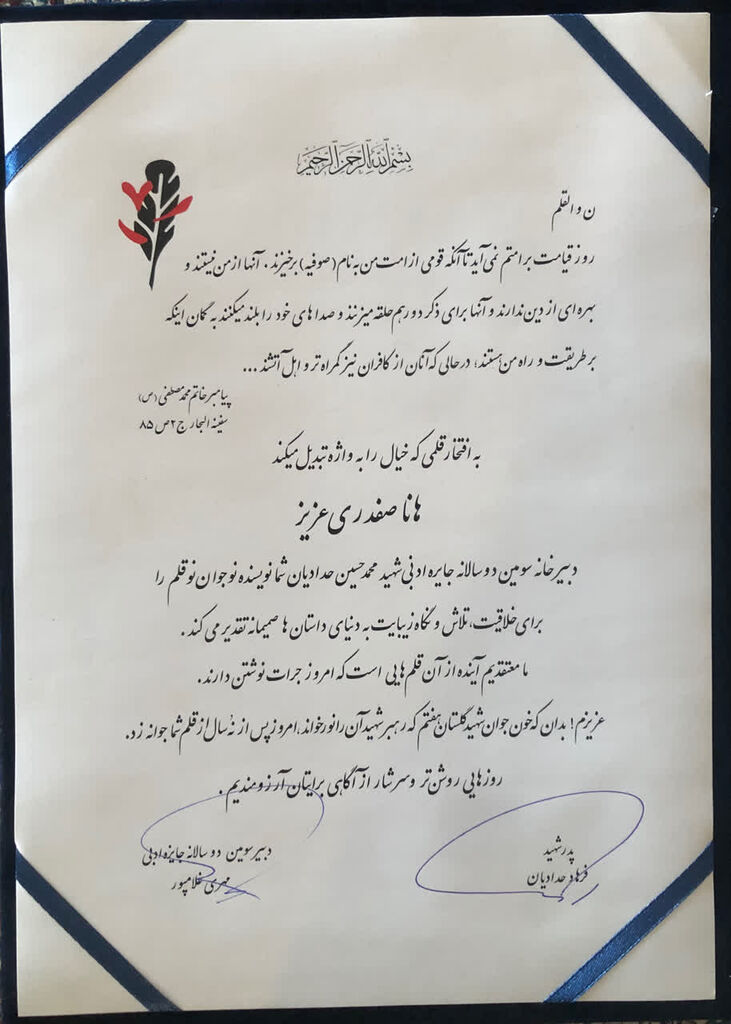 بسم الله الرحمن الرحیم
ن و القلم
روز قیامت بر امتم نمی آید تا آنکه قومی از امت من به نام (صوفیه) برخیزند. آنها از من نیستند و
بهره ای از دین ندارند و آنها برای ذکر دور هم حلقه میزنند و صدا های خود را بلند میکنند به گمان اینکه
بر طریقت و راه من هستند؛ درحالی که آنان از کافران نیز گمراه تر و اهل آتشند ...
پیامبر خاتم محمد مصطفی (ص)
سفینة البحار ج ۲ ص ۸۵
به افتخار قلمی که خیال را به واژه تبدیل میکند
هانا صفدری عزیز
دبیرخانه سومین دوسالانه جایزه ادبی شهید محمدحسین حدادیان شما نویسنده نوجوان نوقلم را
برای خلاقیت، تلاش و نگاه زیبایت به دنیای داستان ها صمیمانه تقدیر می کند.
ما معتقدیم آینده از آن قلم هایی است که امروز جرات نوشتن دارند.
عزیزم! بدان که خون جوان شهید گلستان هفتم که رهبر شهید آن را نور خواند، امروز پس از نه سال از قلم شما جوانه زد.
روزهایی روشن تر و سرشار از آگاهی برایتان آرزومندیم.
پدر شهید
فرهاد حدادیان
دبیر سومین دوسالانه جایزه ادبی
مهری غلامپور